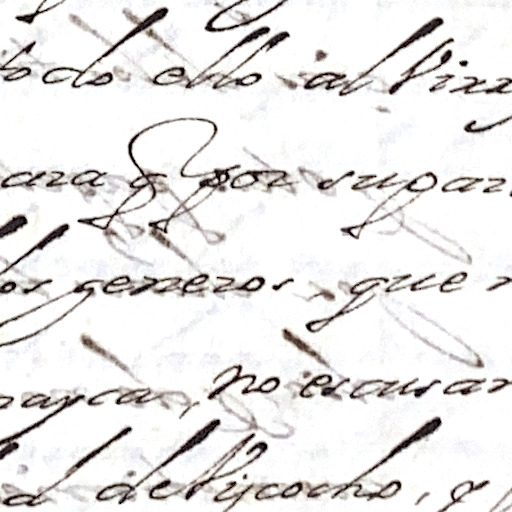 todo ello al Virr
para q por su par
los generos, que
no escusar
del Vizcocho, y